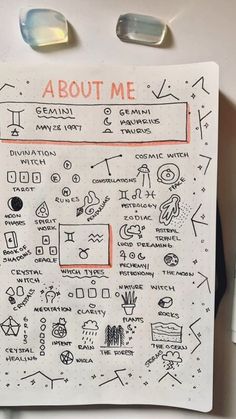 ABOUT ME
GEMINI
MAY 28 1997
GEMINI
AQUARIUS
TAURUS
DIVINATION WITCH
TAROT
RUNES
PENDULUMS
MOON PHASES
SPIRIT WORK
BOOK OF SHADOWS
ORACLE
COSMIC WITCH
CONSTELLATIONS
SPACE
ASTROLOGY
ZODIAC
ASTRAL TRAVEL
LUCID DREAMING
ALCHEMY/
ASTRONOMY
THE MOON
WITCH TYPES
CRYSTAL WITCH
CRYSTALS
MEDITATION
CLARITY
CRYSTAL HEALING
INTENT
NATURE WITCH
PLANTS
ROCKS
RAIN
THE FOREST
THE OCEAN